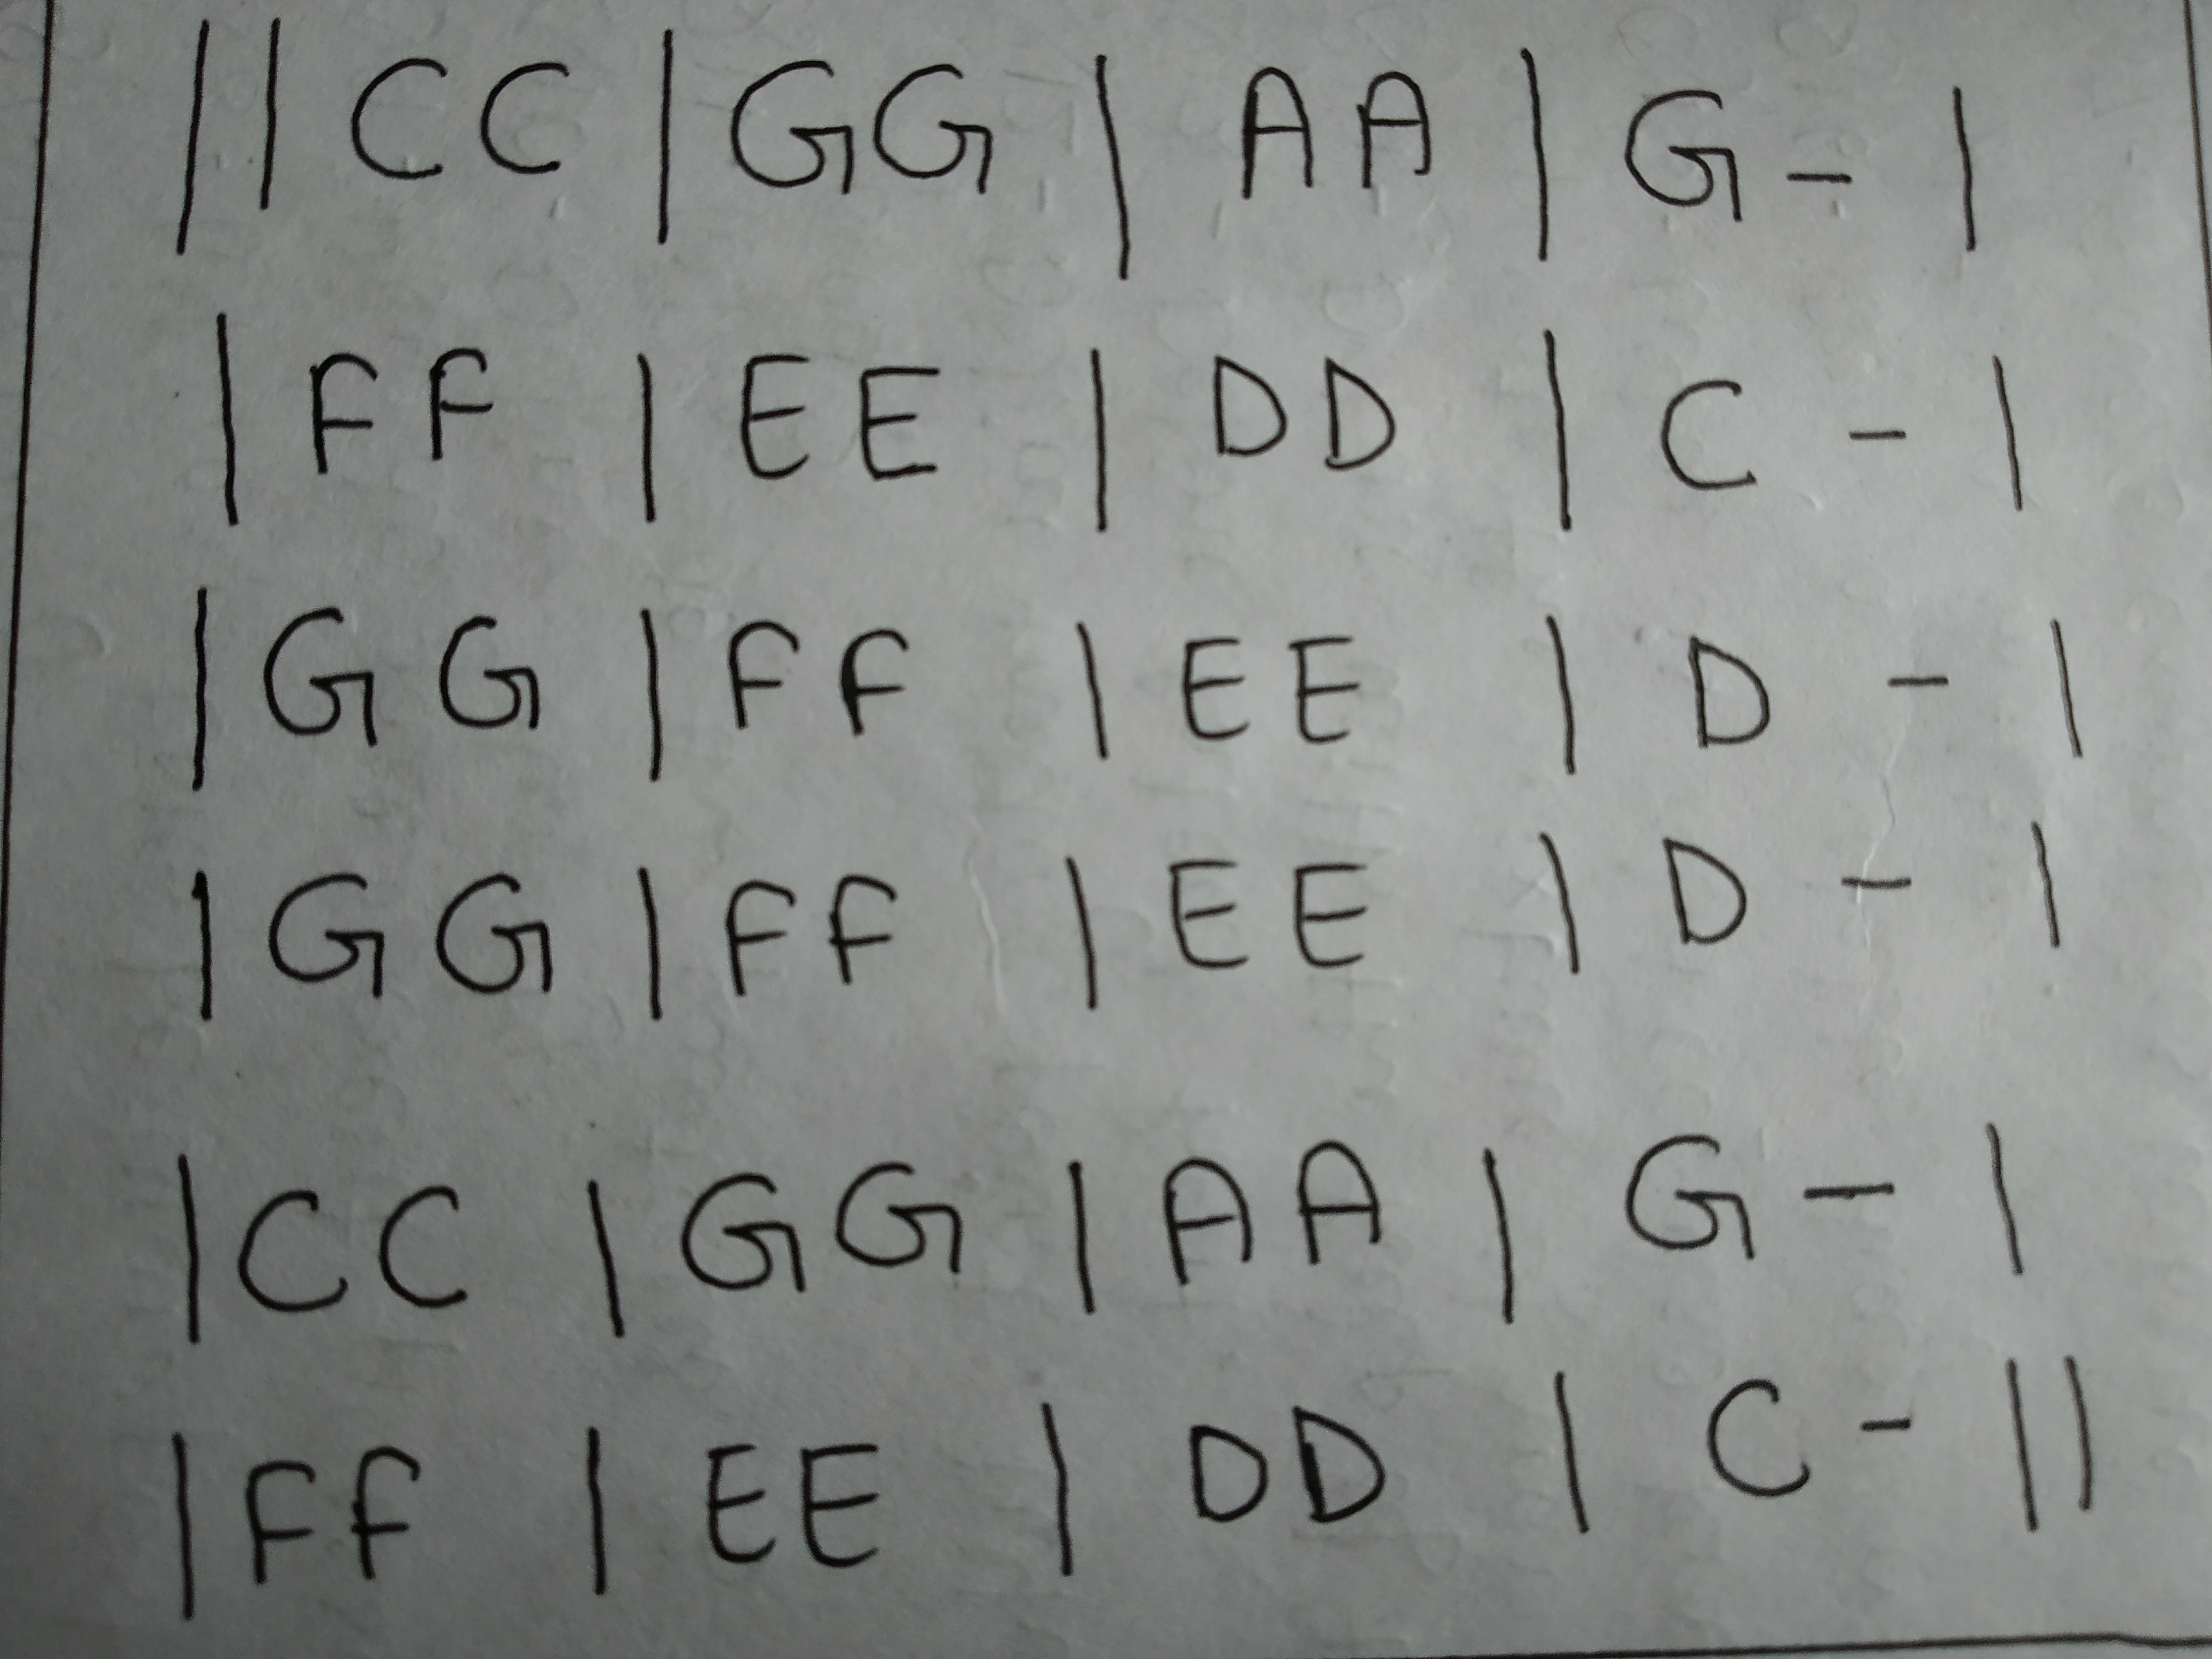 || CC | GG | AA | G - |
| FF | EE | DD | C - |
| GG | FF | EE | D - |
| GG | FF | EE | D - |
| CC | GG | AA | G - |
| FF | EE | DD | C - ||